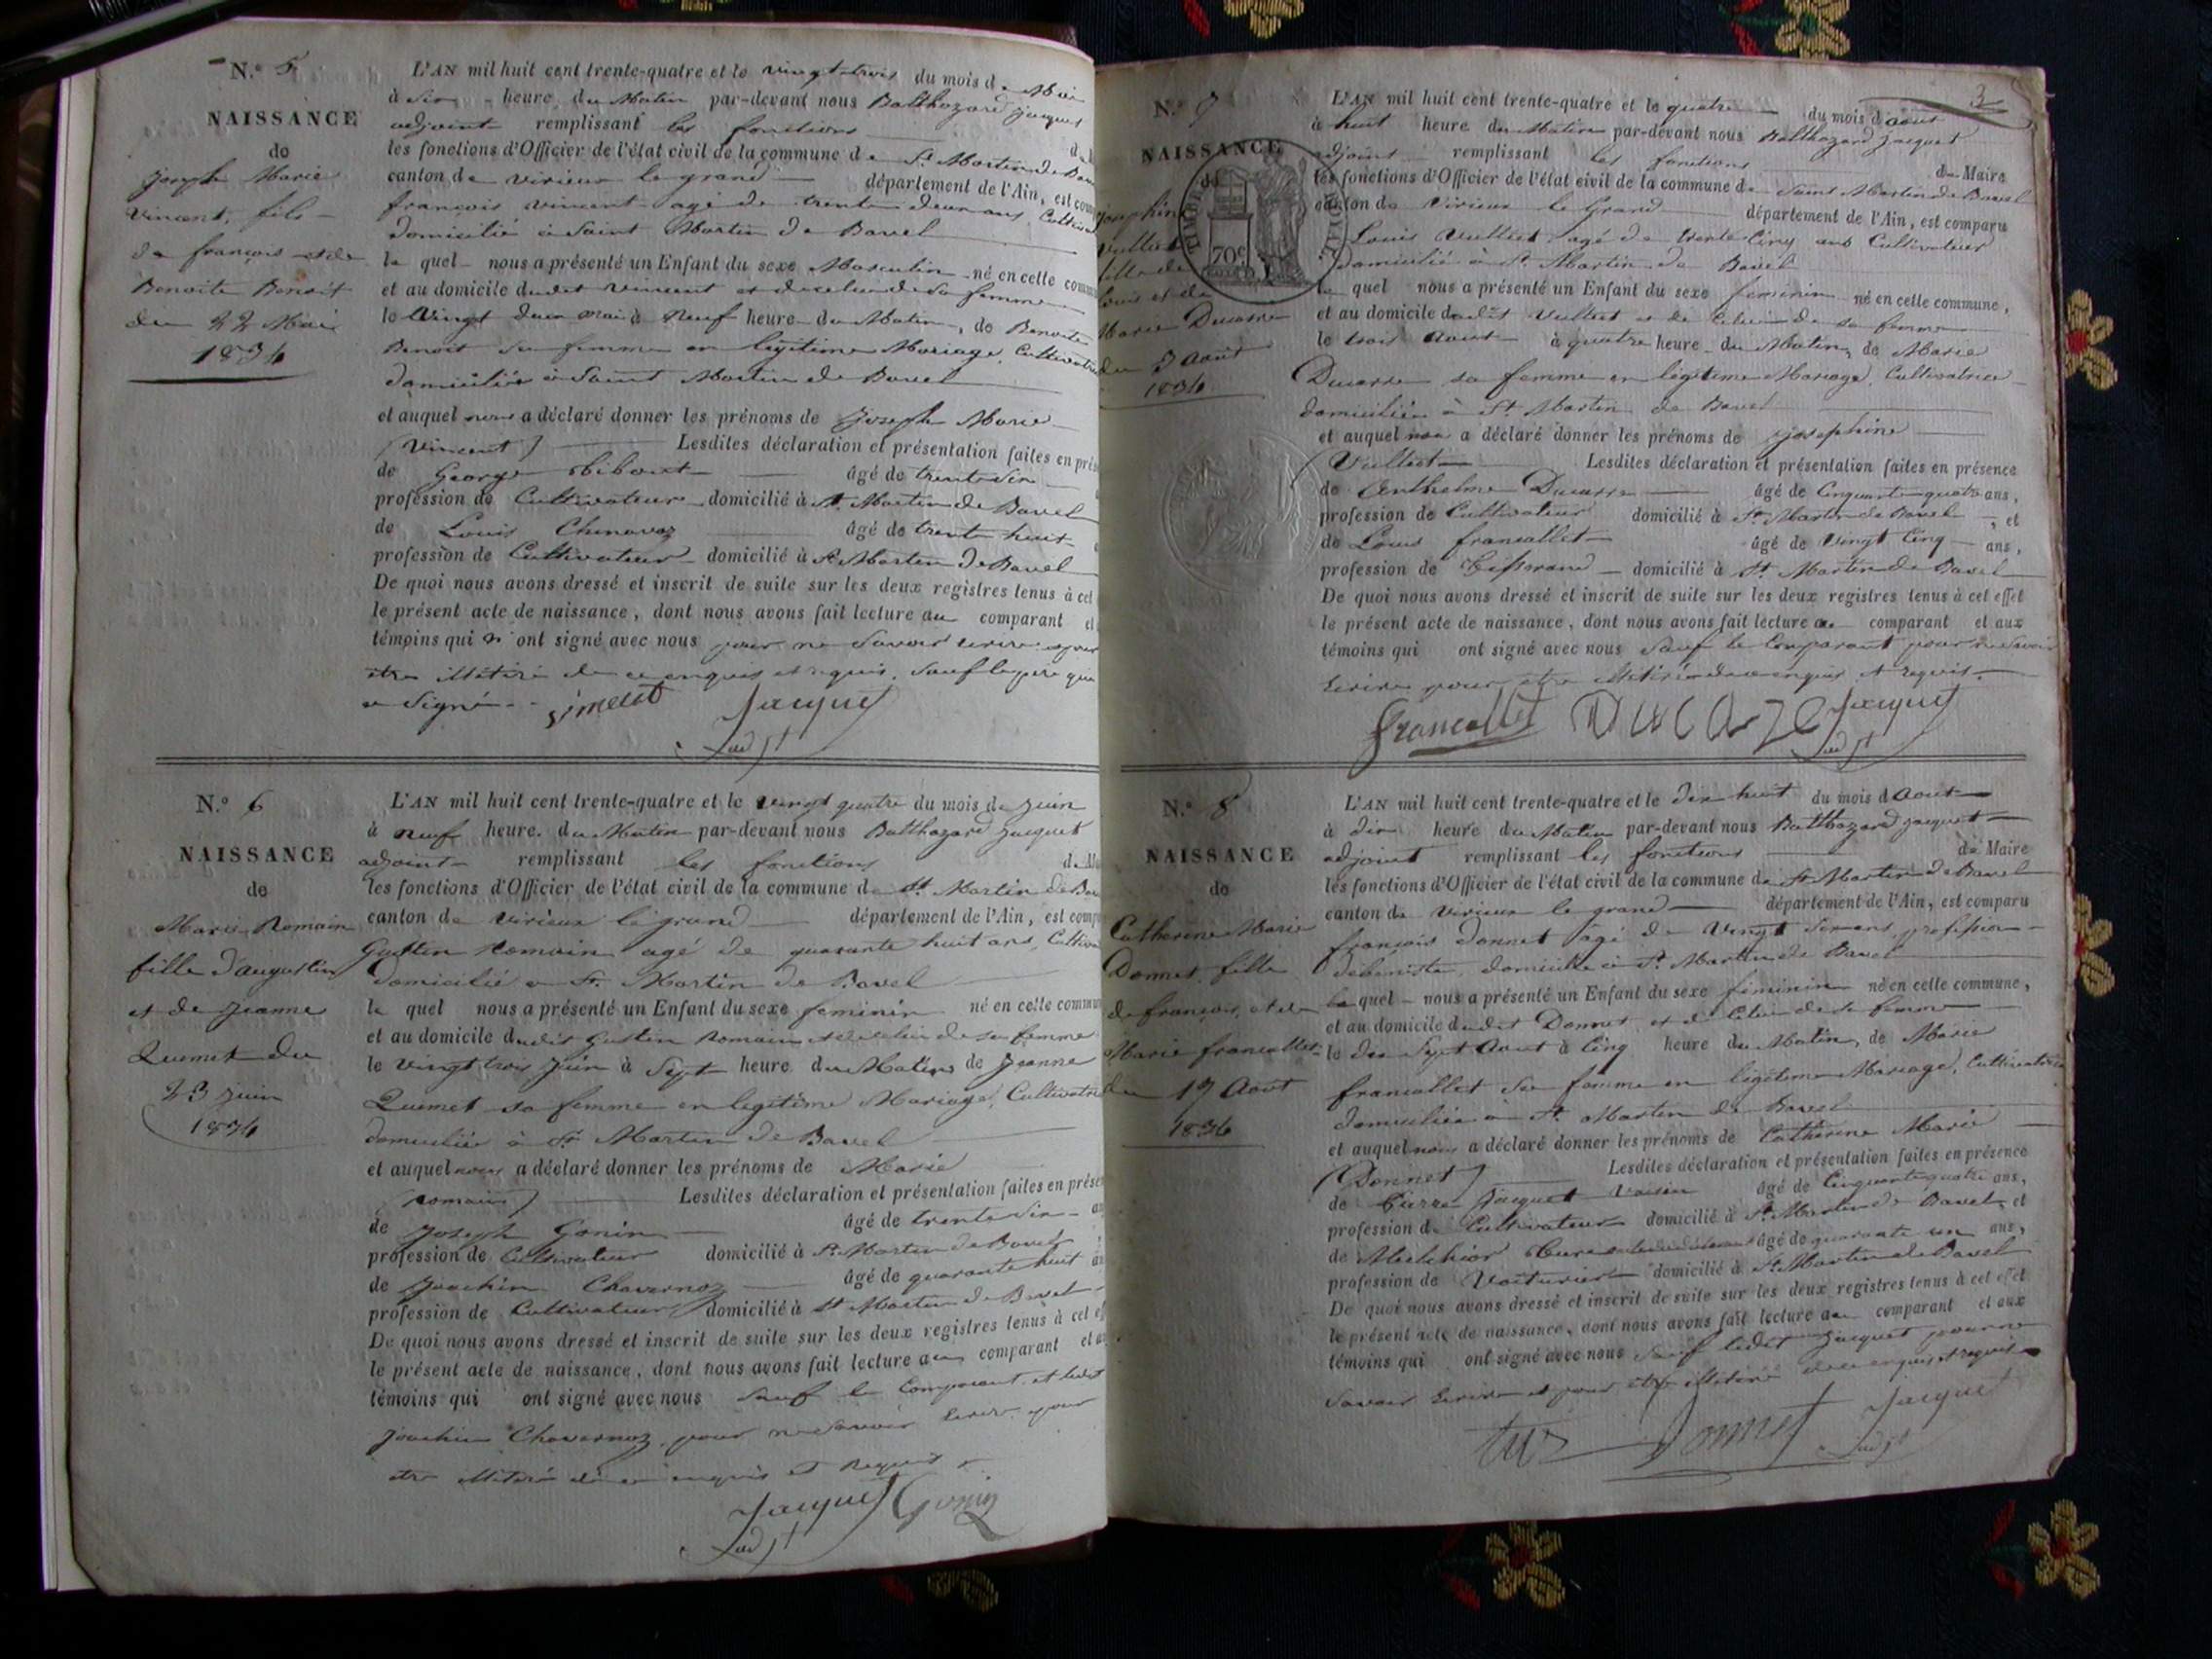 N.º 5
NAISSANCE
de
Joseph Marie
Vincent, fils
de françois et de
Benoite Benoit
du 22 Mai
1834
L'AN mil huit cent trente-quatre et le vingt-trois du mois de Mai
à six heure du Matin par-devant nous Balthazard Jacquet
adjoint remplissant les fonctions d
les fonctions d'Officier de l'état civil de la commune de St Martin de Bav
canton de virieux le grand département de l'Ain, est com
françois vincent agé de trente deux ans, Cultiva
domicilié à Saint Martin de Bavel
le quel nous a présenté un Enfant du sexe Masculin né en cette comm
et au domicile dudit vincent et de celui de sa femme
le vingt deux mai à neuf heure du Matin, de Benoite
Benoit sa femme en légitime Mariage, Cultivatri
domiciliée à Saint Martin de Bavel
et auquel nous a déclaré donner les prénoms de Joseph Marie
(Vincent) Lesdites déclaration et présentation faites en prés
de George âgé de trente six
profession de Cultivateur domicilié à St Martin de Bavel
de Louis Chenavaz âgé de trente huit
profession de Cultivateur domicilié à St Martin de Bavel
De quoi nous avons dressé et inscrit de suite sur les deux registres tenus à cet
le présent acte de naissance, dont nous avons fait lecture au comparant et
témoins qui n'ont signé avec nous pour ne savoir ecrire pour
etre illitéré de ce enquis et requis, sauf le père qui
a Signé
Jacquet
adjt
N.º 6
NAISSANCE
de
Marie Romain
fille d'augustin
et de Jeanne
Quemet du
23 juin
1834
L'AN mil huit cent trente-quatre et le vingt quatre du mois de juin
à neuf heure du Matin par-devant nous Balthazard Jacquet
adjoint remplissant les fonctions de Ma
les fonctions d'Officier de l'état civil de la commune de St Martin de Bav
canton de virieux le grand département de l'Ain, est comp
Gustin Romain agé de quarante huit ans, Cultiva
domicilié a St Martin de Bavel
le quel nous a présenté un Enfant du sexe feminin né en cette commun
et au domicile dudit Gustin Romain et de celui de sa femme
le vingt trois juin à Sept heure du Matin, de Jeanne
Quemet sa femme en legitime Mariage, Cultivatri
domiciliée à St Martin de Bavel
et auquel nous a déclaré donner les prénoms de Marie
(romain) Lesdites déclaration et présentation faites en prése
de Joseph Gonin âgé de trente six
profession de Cultivateur domicilié à St Martin de Bavel
de Joachin Chavernoz âgé de quarante huit
profession de Cultivateur domicilié à St Martin de Bavel
De quoi nous avons dressé et inscrit de suite sur les deux registres tenus à cet ef
le présent acte de naissance, dont nous avons fait lecture au comparant et au
témoins qui ont signé avec nous sauf le Comparant et ledit
Joachin Chavernoz pour ne savoir Ecrire pour
etre illitéré de ce enquis et requis
Jacquet Gonin
adjt
3
N.º 7
NAISSANCE
de
Josephine
Vulliet
fille de
Louis et de
Marie Ducarre
du 3 Août
1834
TIMBRE ROYAL
70c
L'AN mil huit cent trente-quatre et le quatre du mois d'août
à huit heure du Matin par-devant nous Balthazard Jacquet
adjoint remplissant les fonctions de Maire
les fonctions d'Officier de l'état civil de la commune de Saint Martin de Bavel
canton de Virieux le Grand département de l'Ain, est comparu
Louis Vulliet agé de trente Cinq ans Cultivateur
domicilié à St Martin de Bavel
le quel nous a présenté un Enfant du sexe feminin né en cette commune,
et au domicile dudit Vulliet et de Celui de sa femme
le trois Aout à quatre heure du Matin, de Marie
Ducarre sa femme en légitime Mariage, Cultivatrice
domiciliée à St Martin de Bavel
et auquel nous a déclaré donner les prénoms de Josephine
(Vulliet) Lesdites déclaration et présentation faites en présence
de Anthelme Ducarre âgé de Cinquante quatre ans,
profession de Cultivateur domicilié à St Martin de Bavel, et
de Louis francallet âgé de Vingt Cinq ans,
profession de Tisserand domicilié à St Martin de Bavel
De quoi nous avons dressé et inscrit de suite sur les deux registres tenus à cet effet
le présent acte de naissance, dont nous avons fait lecture au comparant et aux
témoins qui ont signé avec nous Sauf le Comparant pour ne Savoir
Ecrire pour etre illitéré de ce enquis et requis.
francallet DUCARE Jacquet
adjt
N.º 8
NAISSANCE
de
Catherine Marie
Donnet, fille
de françois et de
Marie francallet
du 17 Août
1834
L'AN mil huit cent trente-quatre et le dix huit du mois d'Aout
à dix heure du Matin par-devant nous Balthazard Jacquet
adjoint remplissant les fonctions de Maire
les fonctions d'Officier de l'état civil de la commune de St Martin de Bavel
canton de Virieux le grand département de l'Ain, est comparu
françois Donnet âgé de Vingt Six ans, profession
débéniste, domicilié à St Martin de Bavel
le quel nous a présenté un Enfant du sexe féminin né en cette commune,
et au domicile dudit Donnet et de Celui de sa femme
le dix Sept Aout à Cinq heure du Matin, de Marie
francallet Sa femme en légitime Mariage, Cultivatrice
domiciliée a St Martin de Bavel
et auquel nous a déclaré donner les prénoms de Catherine Marie
(Donnet) Lesdites déclaration et présentation faites en présence
de Pierre Jacquet Voisin âgé de Cinquante quatre ans,
profession de Cultivateur domicilié à St Martin de Bavel, et
de Melchior âgé de quarante un ans,
profession de Voiturier domicilié à St Martin de Bavel
De quoi nous avons dressé et inscrit de suite sur les deux registres tenus à cet effet
le présent acte de naissance, dont nous avons fait lecture au comparant et aux
témoins qui ont signé avec nous Sauf ledit Jacquet pour ne
Savoir Ecrire et pour etre illitéré de ce enquis et requis
Donnet Jacquet
adjt